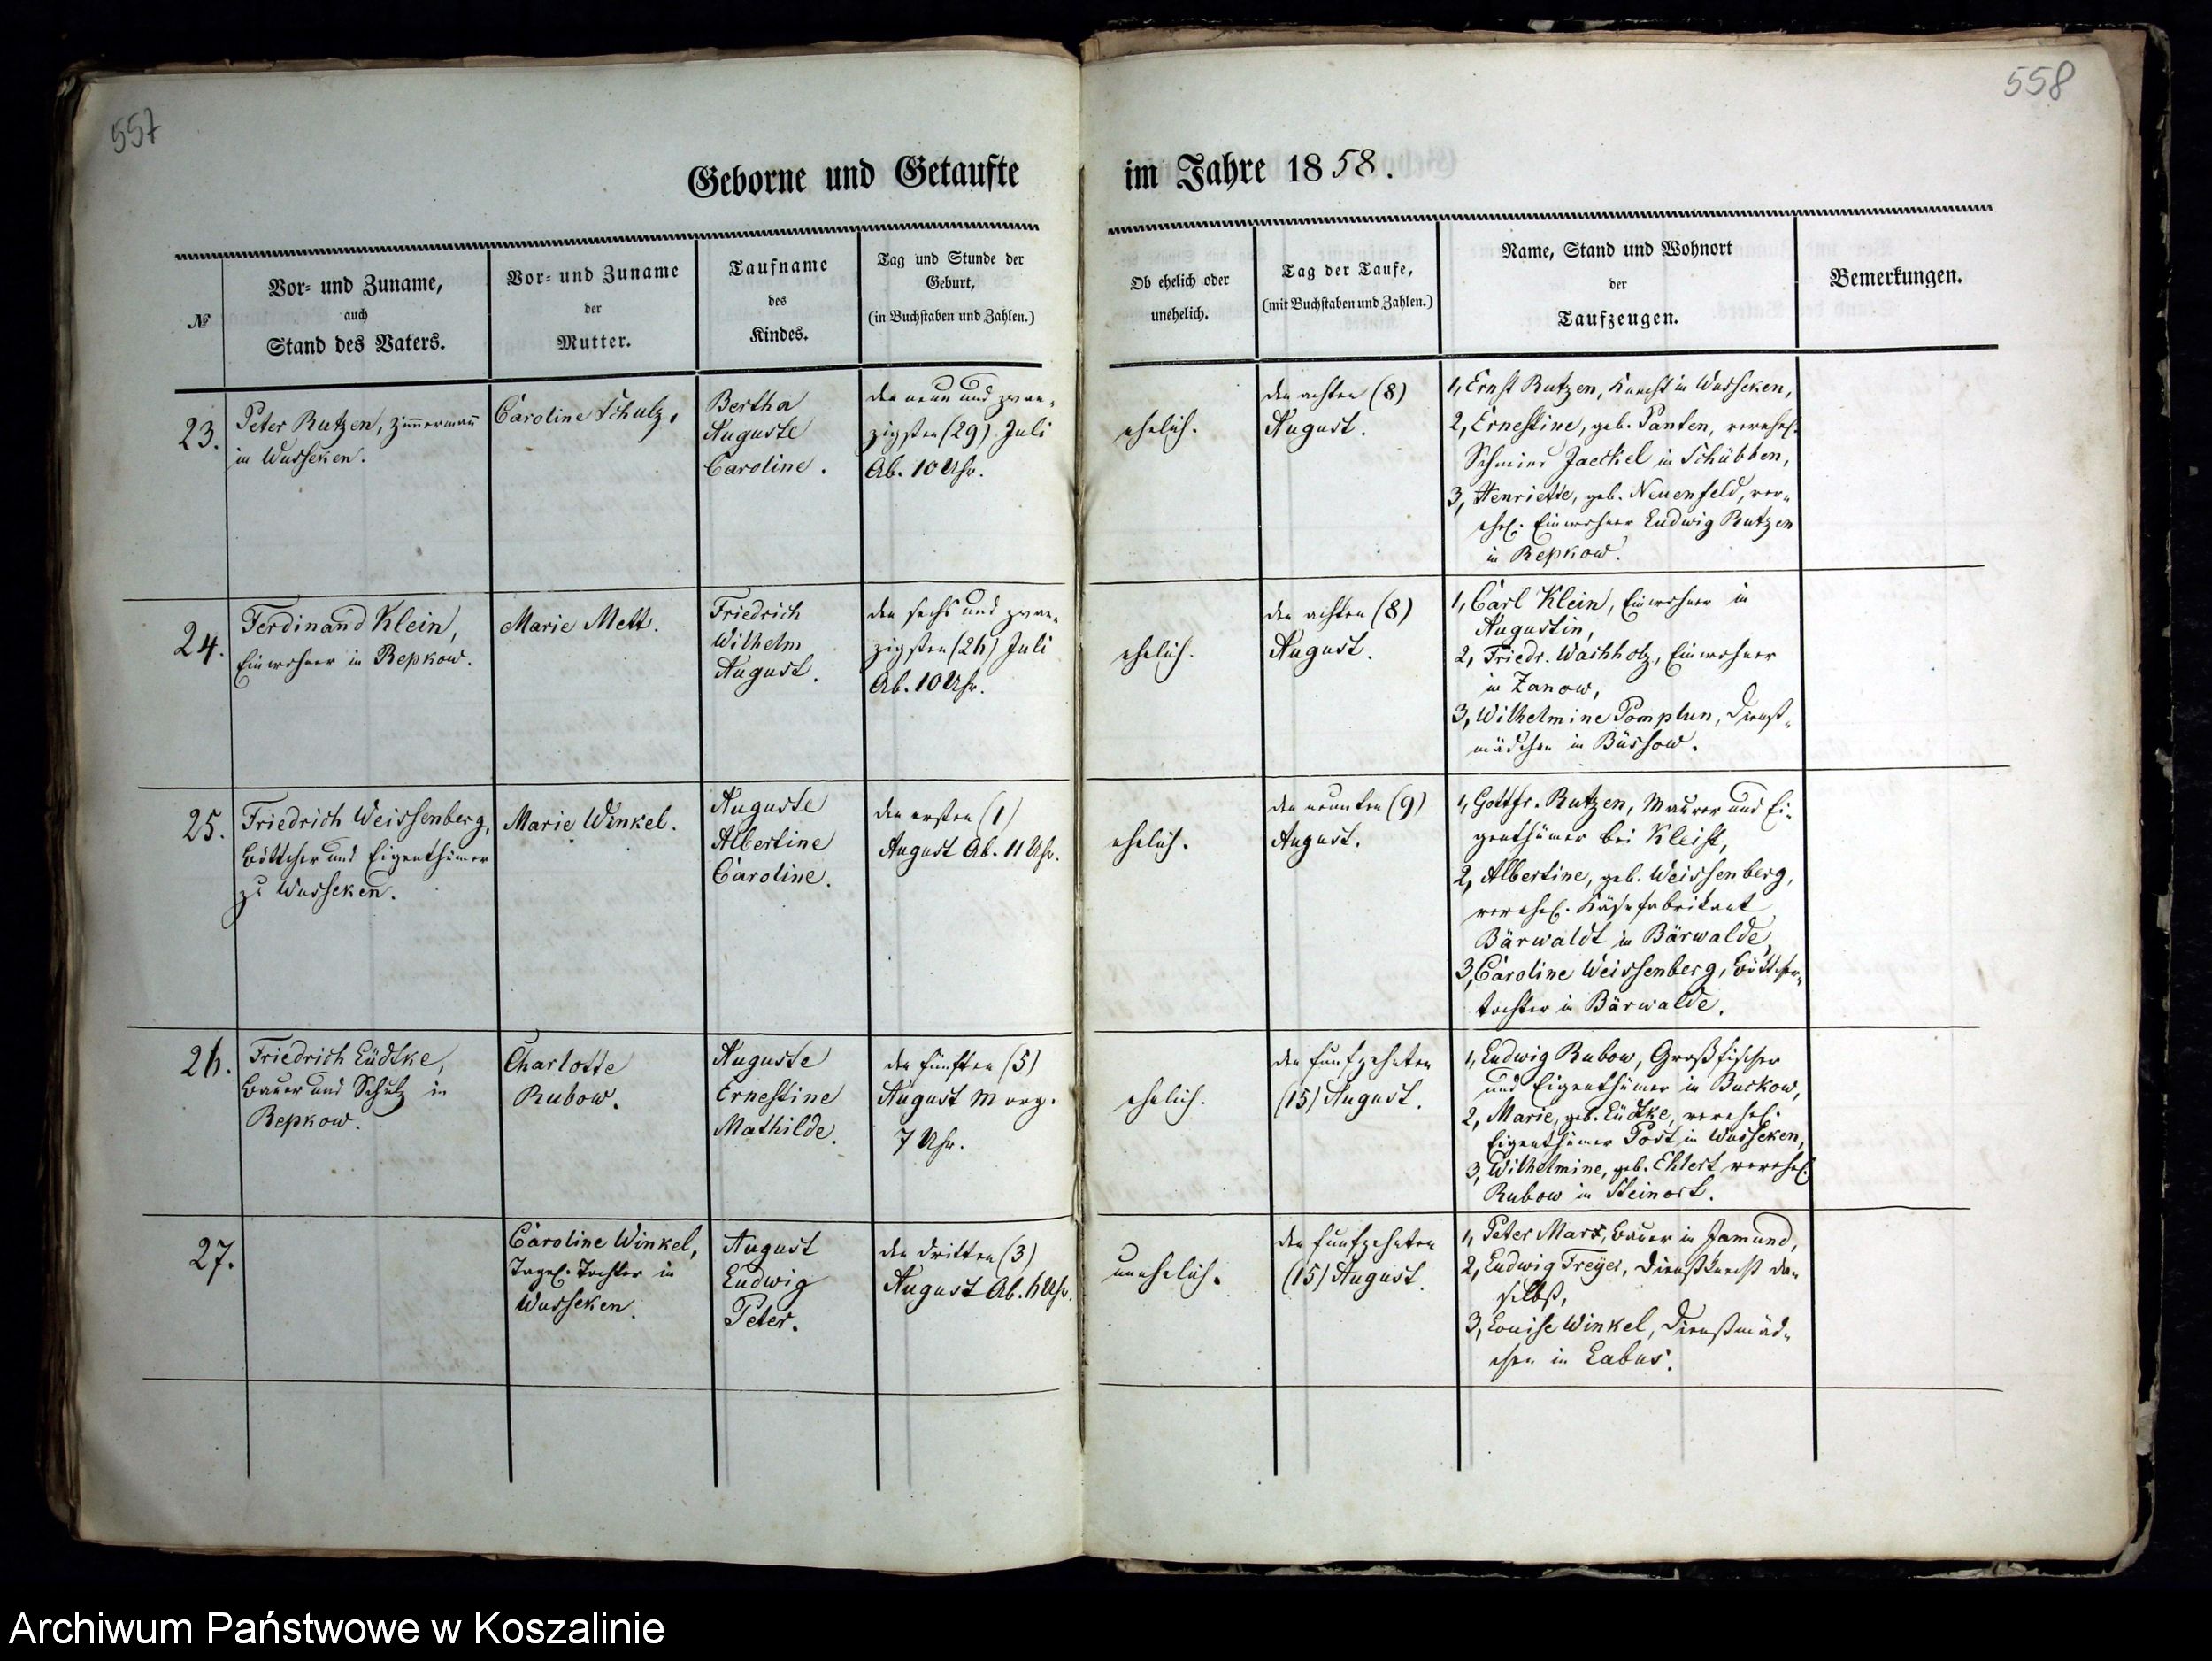 557
558
Geborne und Getaufte im Jahre 1858.
№
Vor- und Zuname,
auch
Stand des Vaters.
Vor- und Zuname
der
Mutter.
Taufname
des
Kindes.
Tag und Stunde der
Geburt,
(in Buchstaben und Zahlen.)
Ob ehelich oder
unehelich.
Tag der Taufe,
(mit Buchstaben und Zahlen.)
Name, Stand und Wohnort
der
Taufzeugen.
Bemerkungen.
23.
Peter Rutzen, Zimmermann
in Wusseken.
Caroline Schulz,
Bertha
Auguste
Caroline.
den neun und zwan-
zigsten (29) Juli
Ab. 10 Uhr.
ehelich.
den achten (8)
August.
1, Ernst Rutzen, Knecht in Wusseken,
2, Ernestine, geb. Panten, verehel.
Schmied Jaeckel in Schübben,
3, Henriette, geb. Neuenfeld, ver-
ehel. Einwohner Ludwig Rutzen
in Repkow.
24.
Ferdinand Klein,
Einwohner in Repkow.
Marie Mett.
Friedrich
Wilhelm
August.
den sechs und zwan-
zigsten (26) Juli
Ab. 10 Uhr.
ehelich.
den achten (8)
August.
1, Carl Klein, Einwohner in
Augustin,
2, Friedr. Wachholz, Einwohner
in Zanow,
3, Wilhelmine Pomplun, Dienst-
mädchen in Büssow.
25.
Friedrich Weissenberg,
Böttcher und Eigenthümer
zu Wusseken.
Marie Winkel.
Auguste
Albertine
Caroline.
den ersten (1)
August Ab. 11 Uhr.
ehelich.
den neunten (9)
August.
1, Gottfr. Rutzen, Maurer und Ei-
genthümer bei Kleist,
2, Albertine, geb. Weissenberg,
verehel. Käsefabrikant
Bärwaldt in Bärwalde,
3, Caroline Weissenberg, Böttcher-
tochter in Bärwalde.
26.
Friedrich Lüdtke,
Bauer und Schulz in
Repkow.
Charlotte
Rubow.
Auguste
Ernestine
Mathilde.
den fünften (5)
August Morg.
7 Uhr.
ehelich.
den funfzehnten
(15) August.
1, Ludwig Rubow, Großfischer
und Eigenthümer in Buckow,
2, Marie, geb. Lüdtke, verehel.
Eigenthümer Post in Wusseken,
3, Wilhelmine, geb. Ehlert verehel.
Rubow in Steinort.
27.
Caroline Winkel,
Tagel. Tochter in
Wusseken.
August
Ludwig
Peter.
den dritten (3)
August Ab. 6 Uhr.
unehelich.
den funfzehnten
(15) August.
1, Peter Marx, Bauer in Jamund,
2, Ludwig Freyer, Dienstknecht da-
selbst,
3, Louise Winkel, Dienstmäd-
chen in Labus.
Archiwum Państwowe w Koszalinie